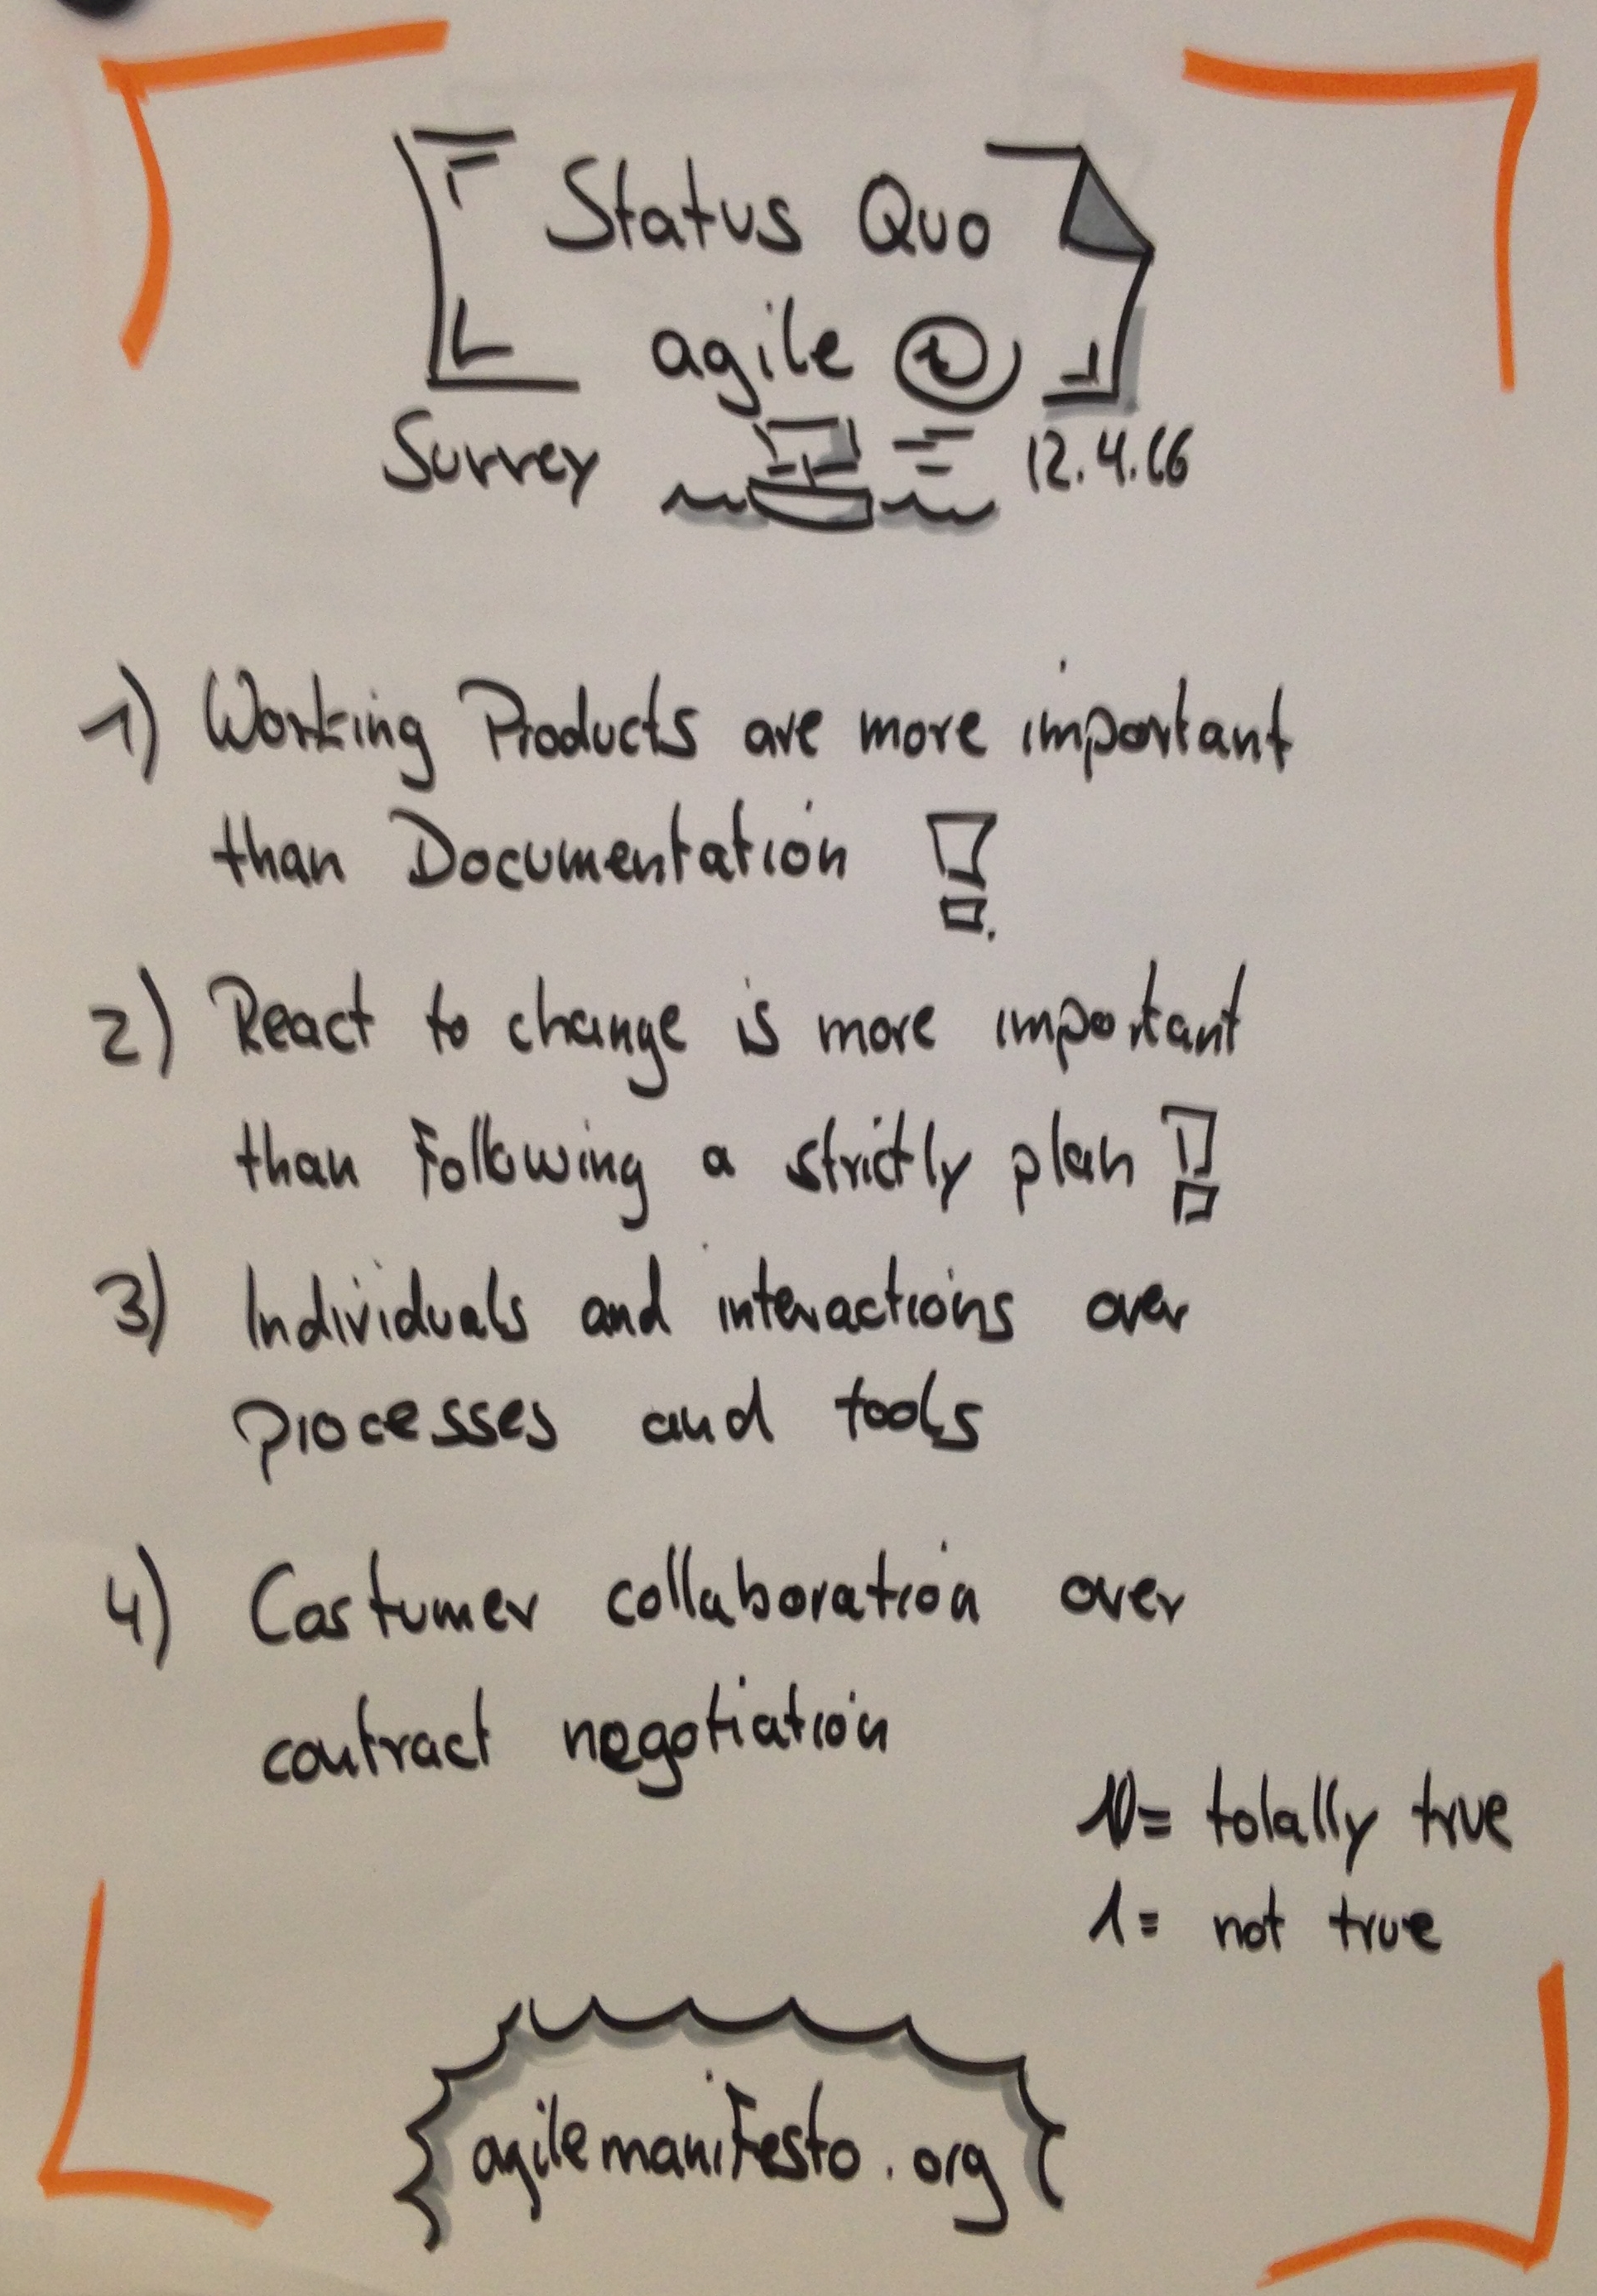 Status Quo
agile
Survey 12.4.16
1) Working Products are more important
than Documentation !
2) React to change is more important
than Following a strictly plan !
3) Individuals and interactions over
processes and tools
4) Costumer collaboration over
contract negotiation
10= totally true
1= not true
agilemanifesto.org